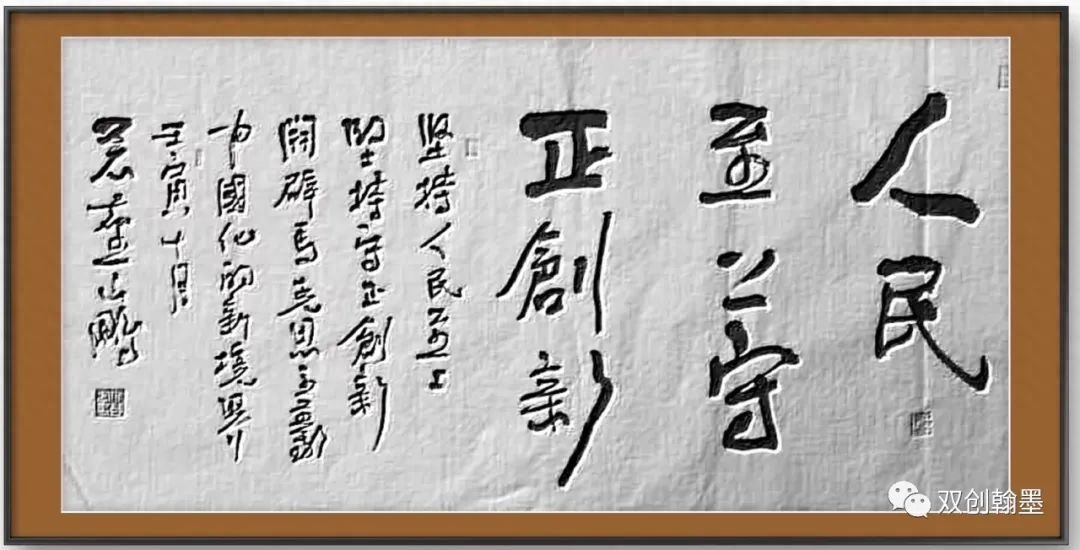 人民
至上守
正創新
坚持人民至上
堅持守正創新
開辟馬克思主義
中國化的新境界
壬寅十月
双创翰墨